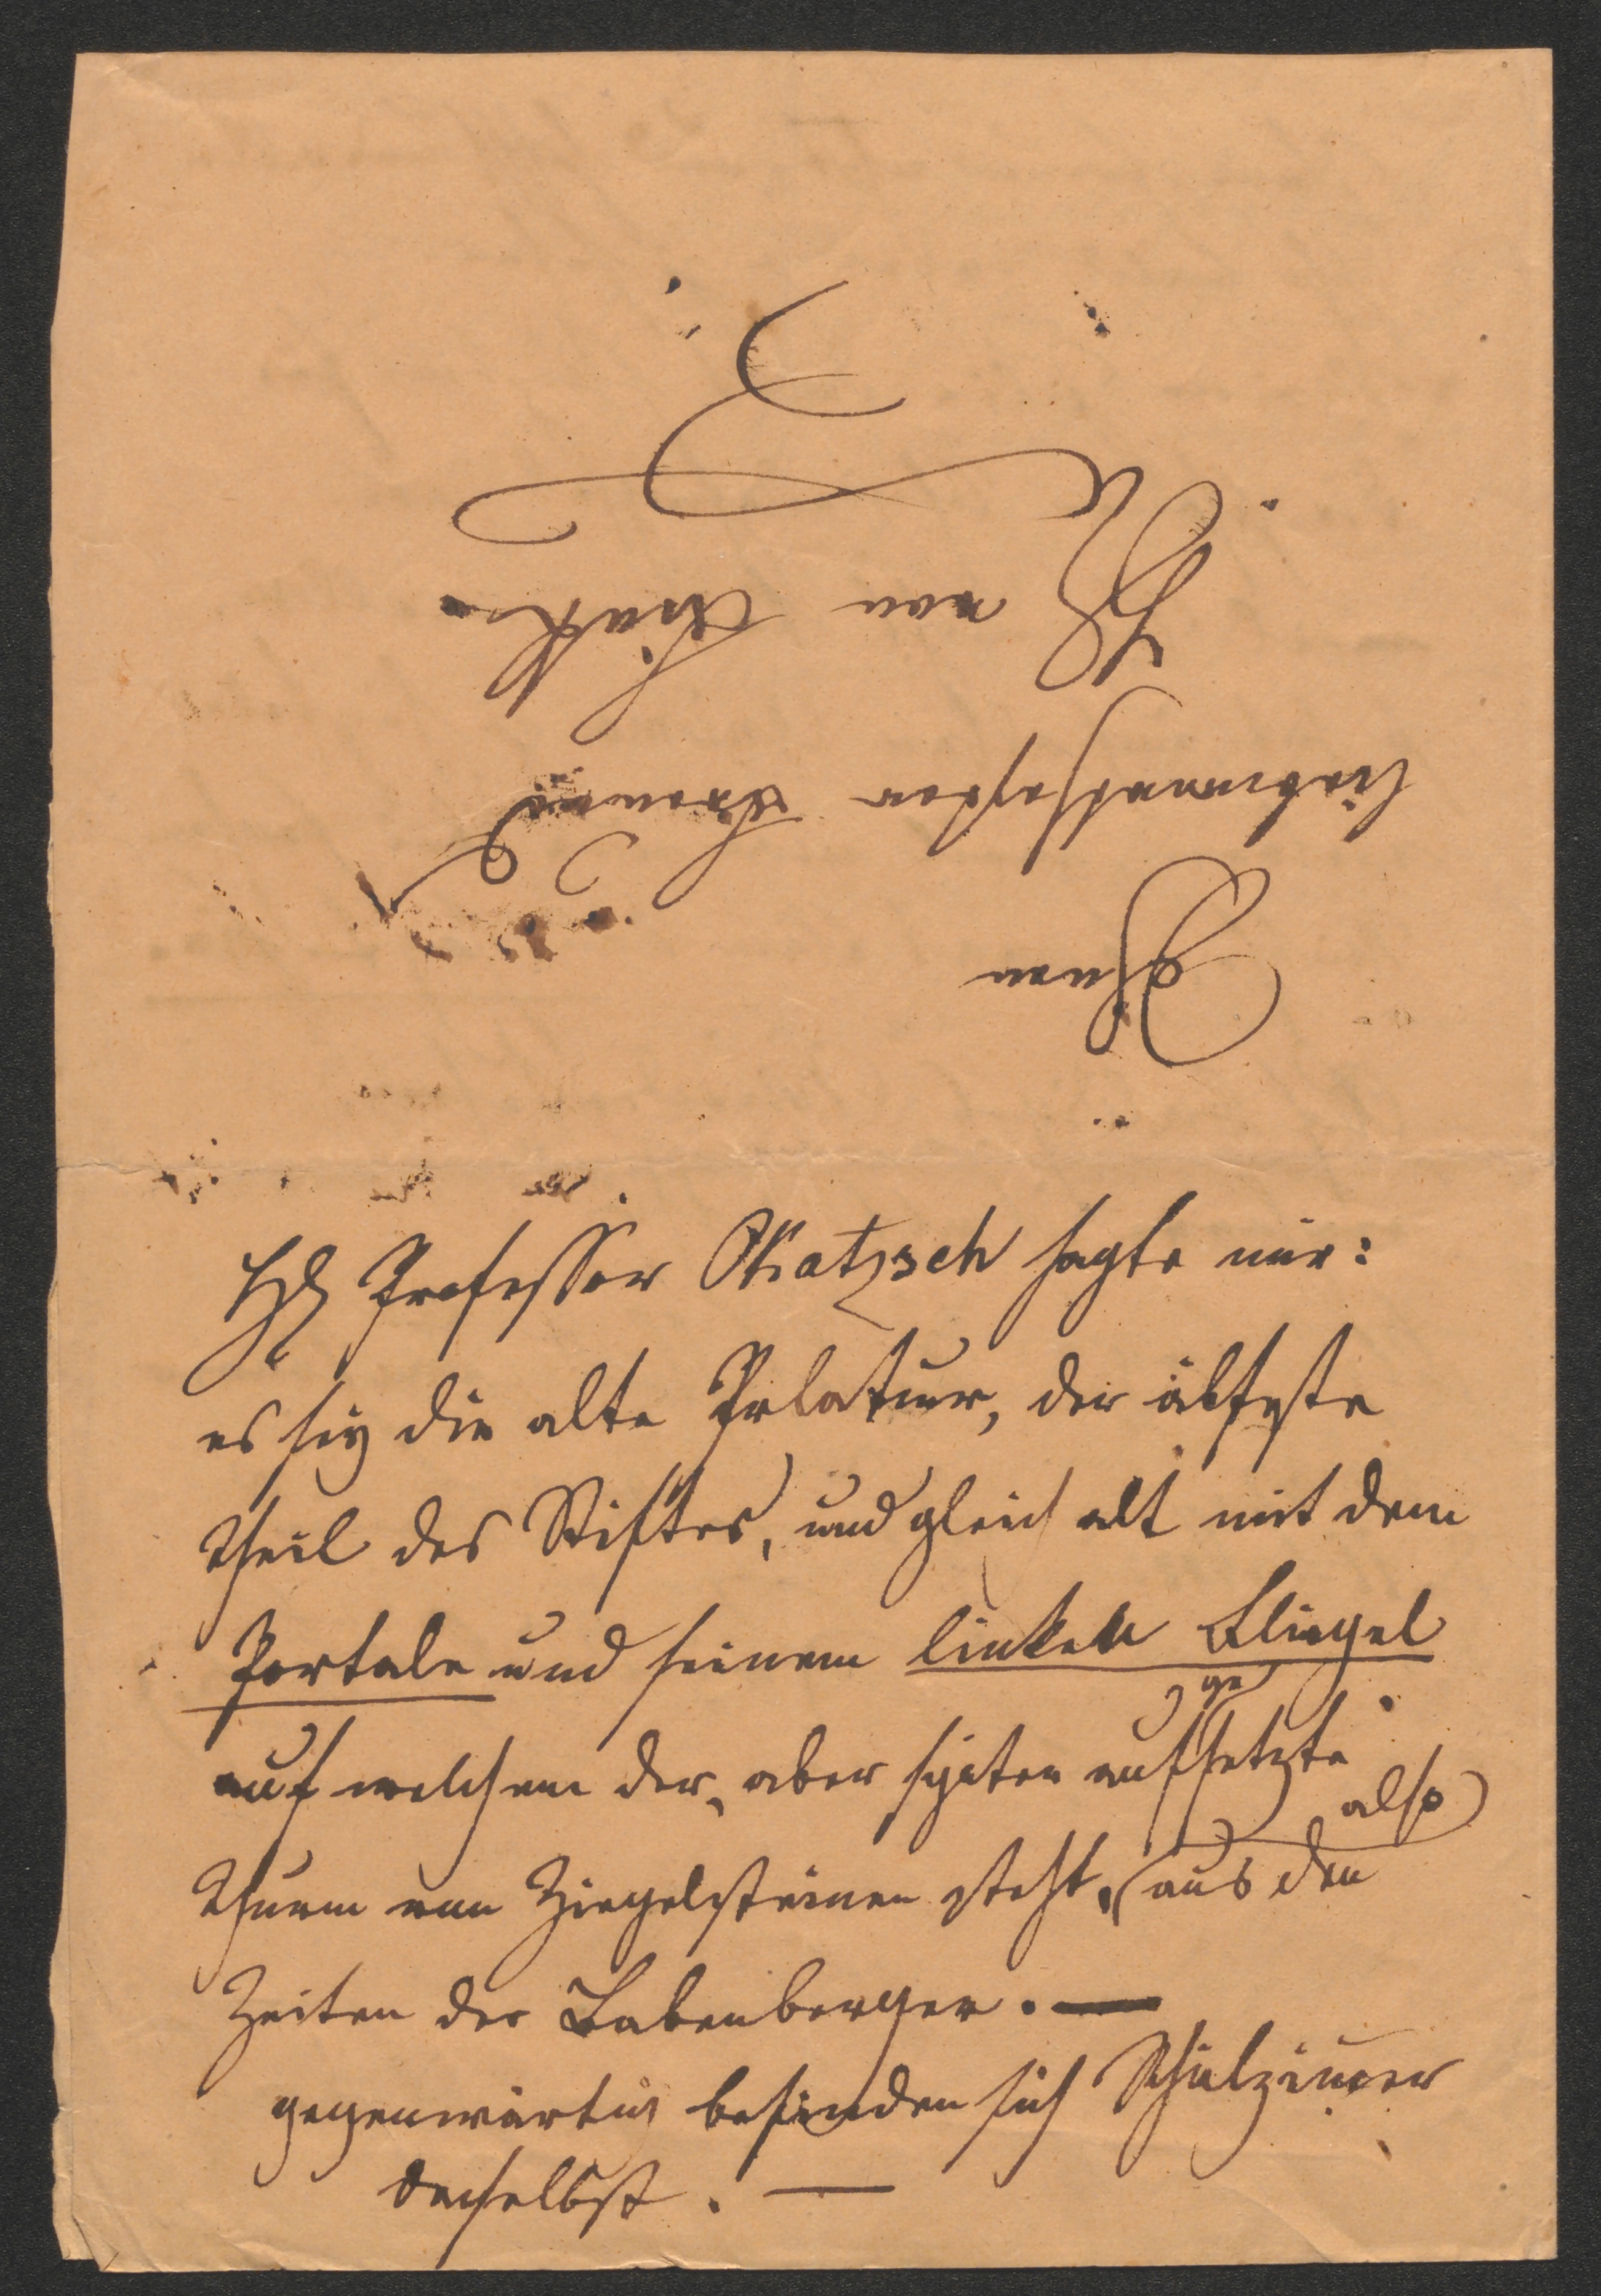 Ihnen
liebwerthester Freund
H von
H Professor Katzsch sagte mir:
es sey die alte Prelatur, der älteste
Theil des Stiftes, und gleich alt mit dem
Portale und seinem linken Fliegel
auf welchem der, aber später aufgesetzte
Thurm von Ziegelsteinen steht, (also aus den
Zeiten der Babenberger. —
gegenwärtig befinden sich Schulzimer
daselbst. —